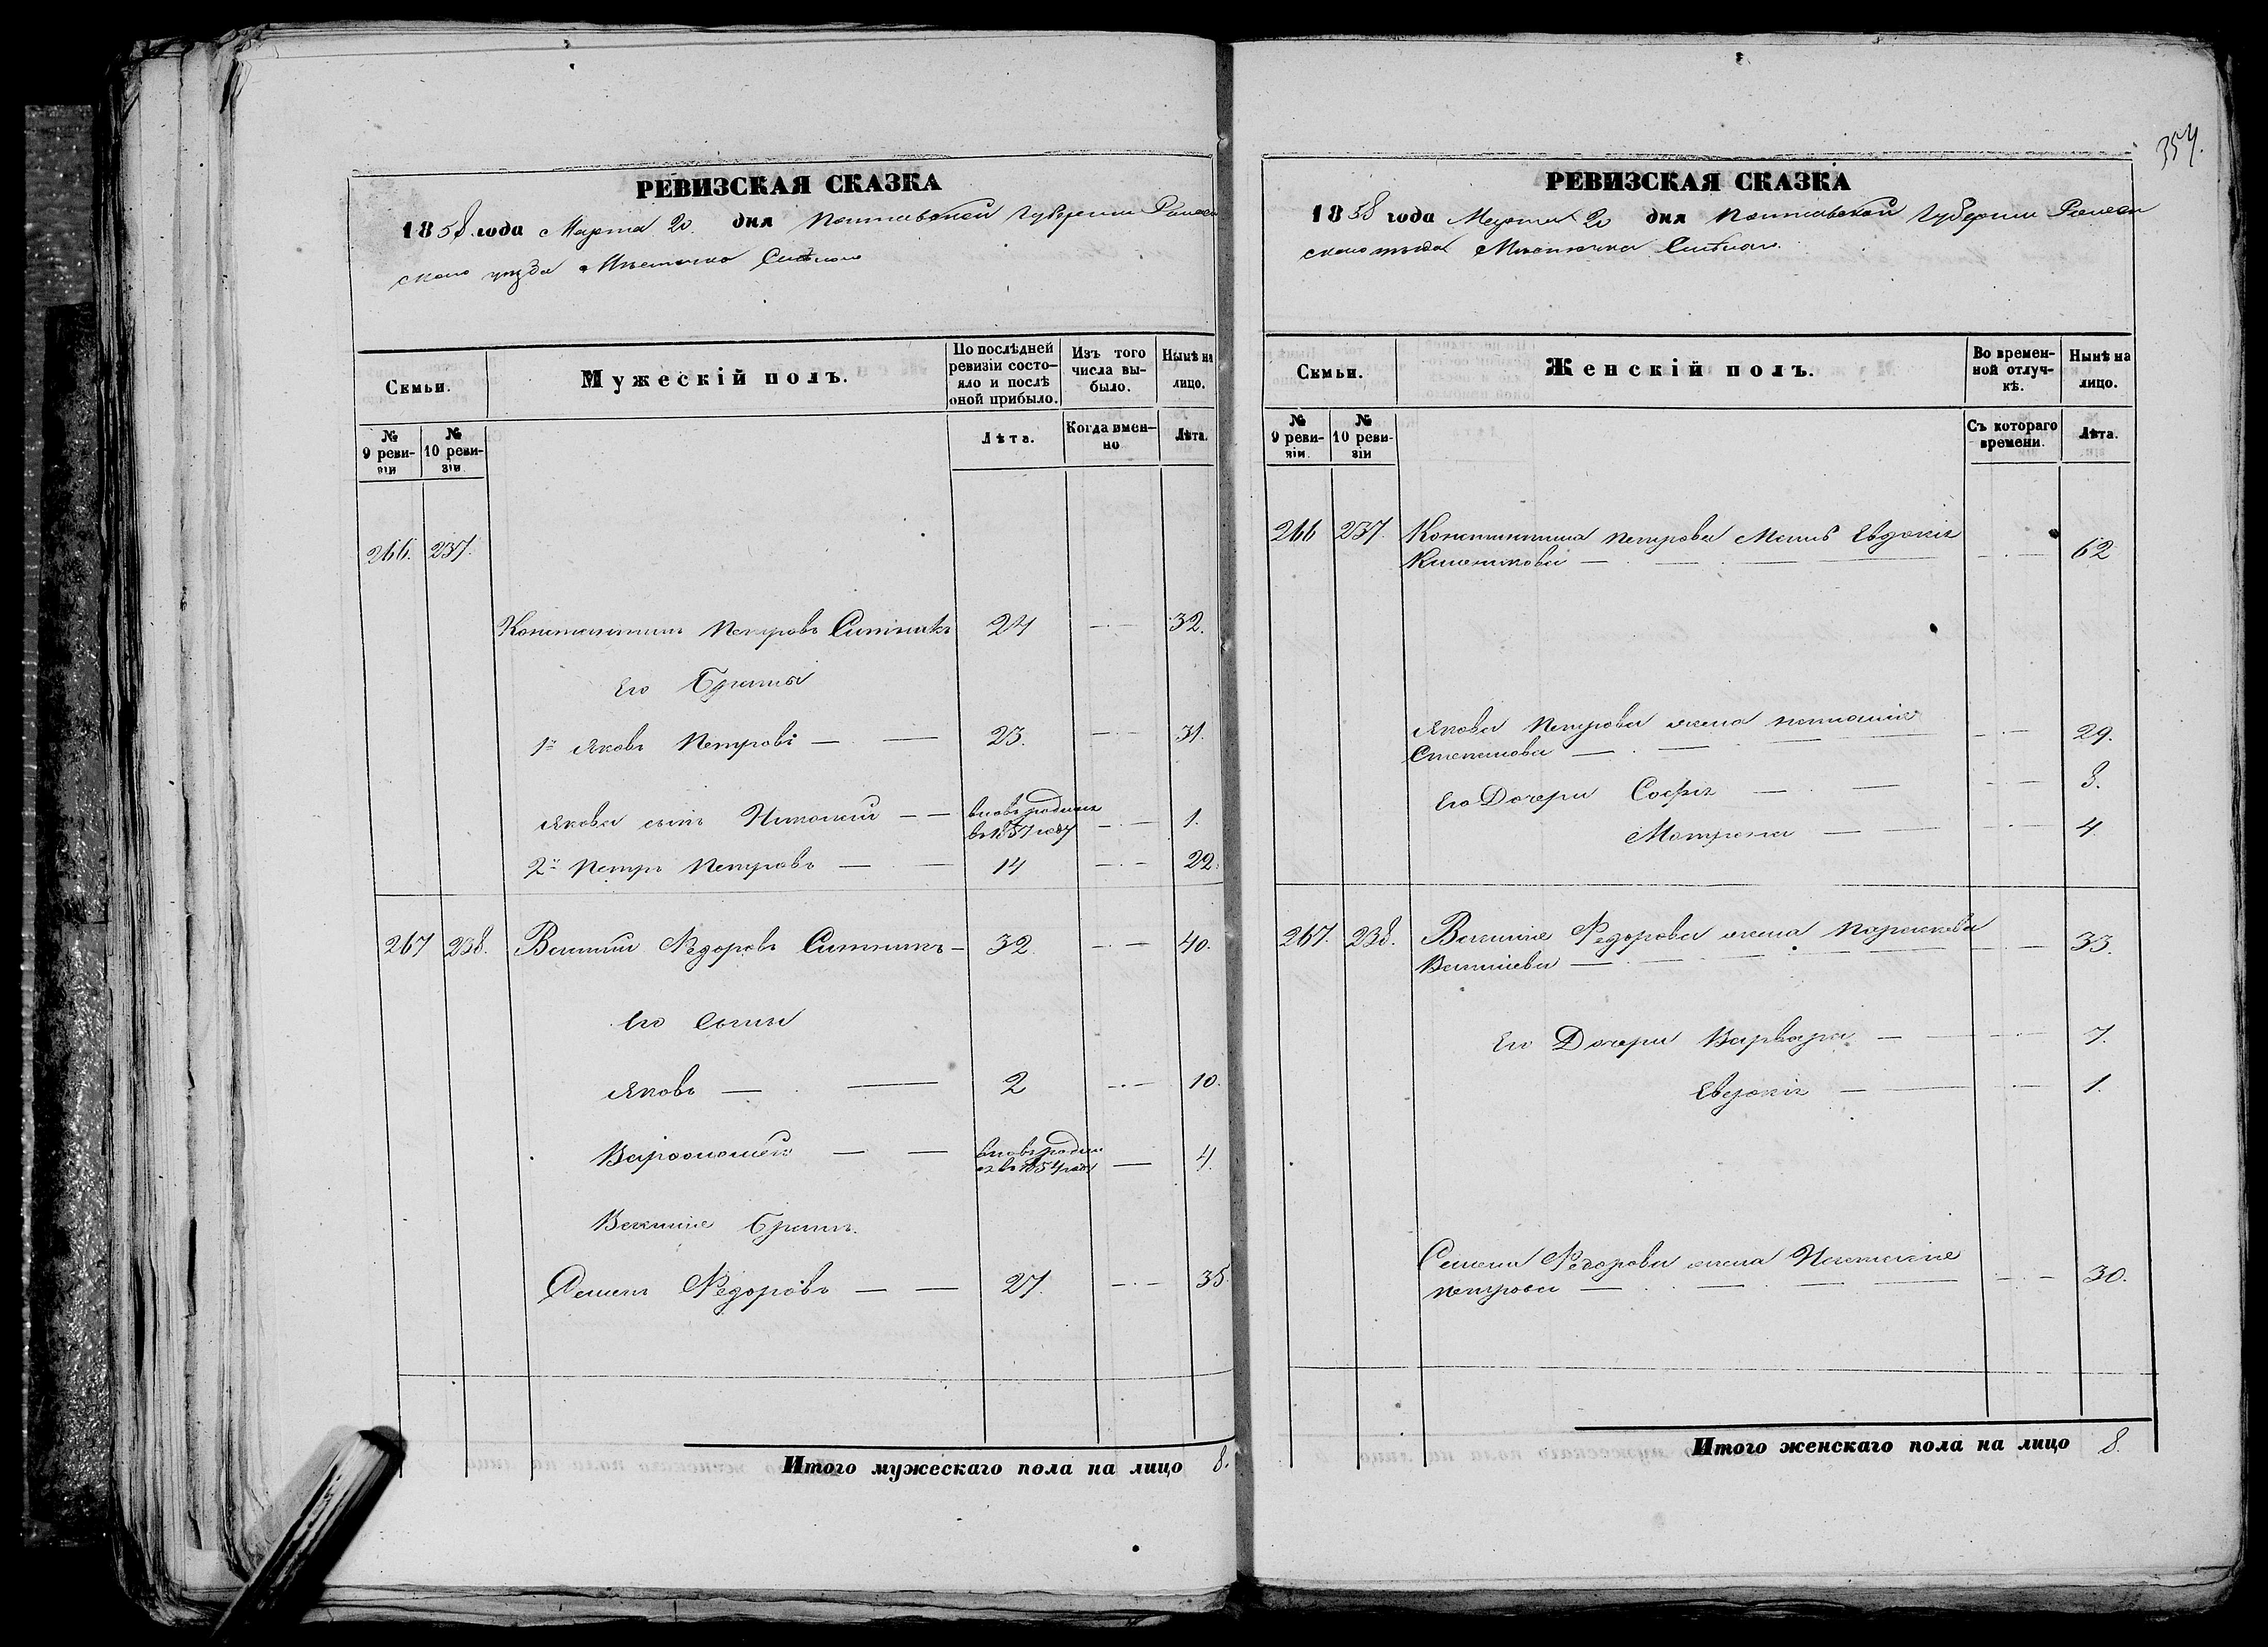 354.
РЕВИЗСКАЯ СКАЗКА
1858 года Марта 20 дня Полтавской Губернии Ромен
скаго уезда Местечка Смѣлаго
Семьи.
Мужескій полъ.
По послѣдней ревизіи состояло и послѣ оной прибыло.
Изъ того числа выбыло.
Нынѣ на лицо.
№ 9 ревизіи
№ 10 ревизіи
Лѣта.
Когда именно
Лѣта.
266. 237.
Константинъ Петровъ Ситникъ 24 — 32.
Его Братья
1й Яковъ Петровъ — 23. — 31.
Якова сынъ Николай — вновь родился
въ 1857 году — 1.
2й Петръ Петровъ — 14 — 22.
267 238. Василий Федоровъ Ситникъ — 32. — 40.
Его Сыны
Яковъ — 2 — 10.
Варфоломей — вновь родил
ся въ 1854 году — 4.
Василия Братъ.
Семенъ Федоровъ — 27. — 35.
Итого мужескаго пола на лицо 8.
РЕВИЗСКАЯ СКАЗКА
1858 года Марта 20 дня Полтавской Губернии Ромен
скаго уезда Местечка Смѣлаго.
Семьи.
Женскій полъ.
Во временной отлучкѣ.
Нынѣ на лицо.
№ 9 ревизіи.
№ 10 ревизіи
Съ котораго времени.
Лѣта.
266 237. Константина Петрова Мать Евдокія
— 62
Якова Петрова жена
Степанова — 29.
Его Дочери Софія — 8.
Матрона — 4
267. 238. Василия Федорова жена Параскева
Василиева — 33.
Его Дочери Варвара — 7.
Евдокія — 1.
Семена Федорова жена Наталия
Петрова — 30.
Итого женскаго пола на лицо 8.